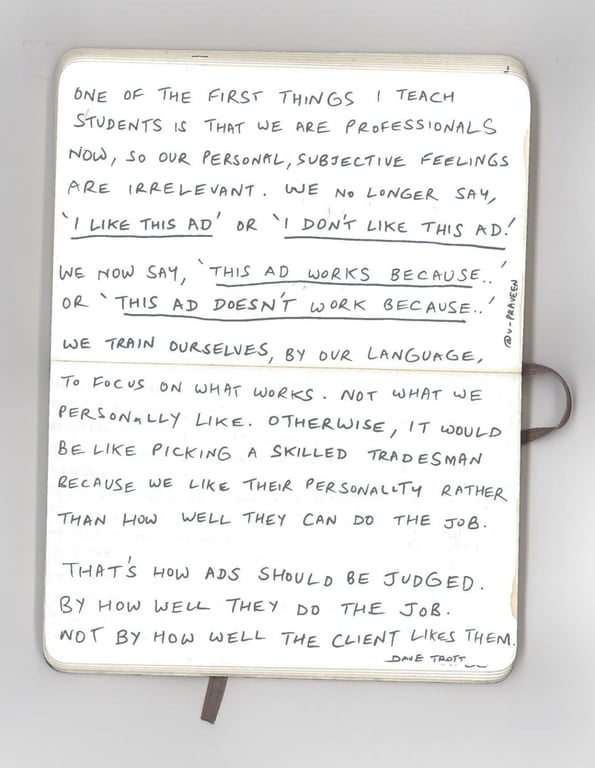 ONE OF THE FIRST THINGS I TEACH
STUDENTS IS THAT WE ARE PROFESSIONALS
NOW, SO OUR PERSONAL, SUBJECTIVE FEELINGS
ARE IRRELEVANT. WE NO LONGER SAY,
'I LIKE THIS AD' OR 'I DON'T LIKE THIS AD.'
WE NOW SAY, 'THIS AD WORKS BECAUSE..'
OR 'THIS AD DOESN'T WORK BECAUSE..'
@V-PRAVEEN
WE TRAIN OURSELVES, BY OUR LANGUAGE,
TO FOCUS ON WHAT WORKS. NOT WHAT WE
PERSONALLY LIKE. OTHERWISE, IT WOULD
BE LIKE PICKING A SKILLED TRADESMAN
BECAUSE WE LIKE THEIR PERSONALITY RATHER
THAN HOW WELL THEY CAN DO THE JOB.
THAT'S HOW ADS SHOULD BE JUDGED.
BY HOW WELL THEY DO THE JOB.
NOT BY HOW WELL THE CLIENT LIKES THEM.
DAVE TROTT